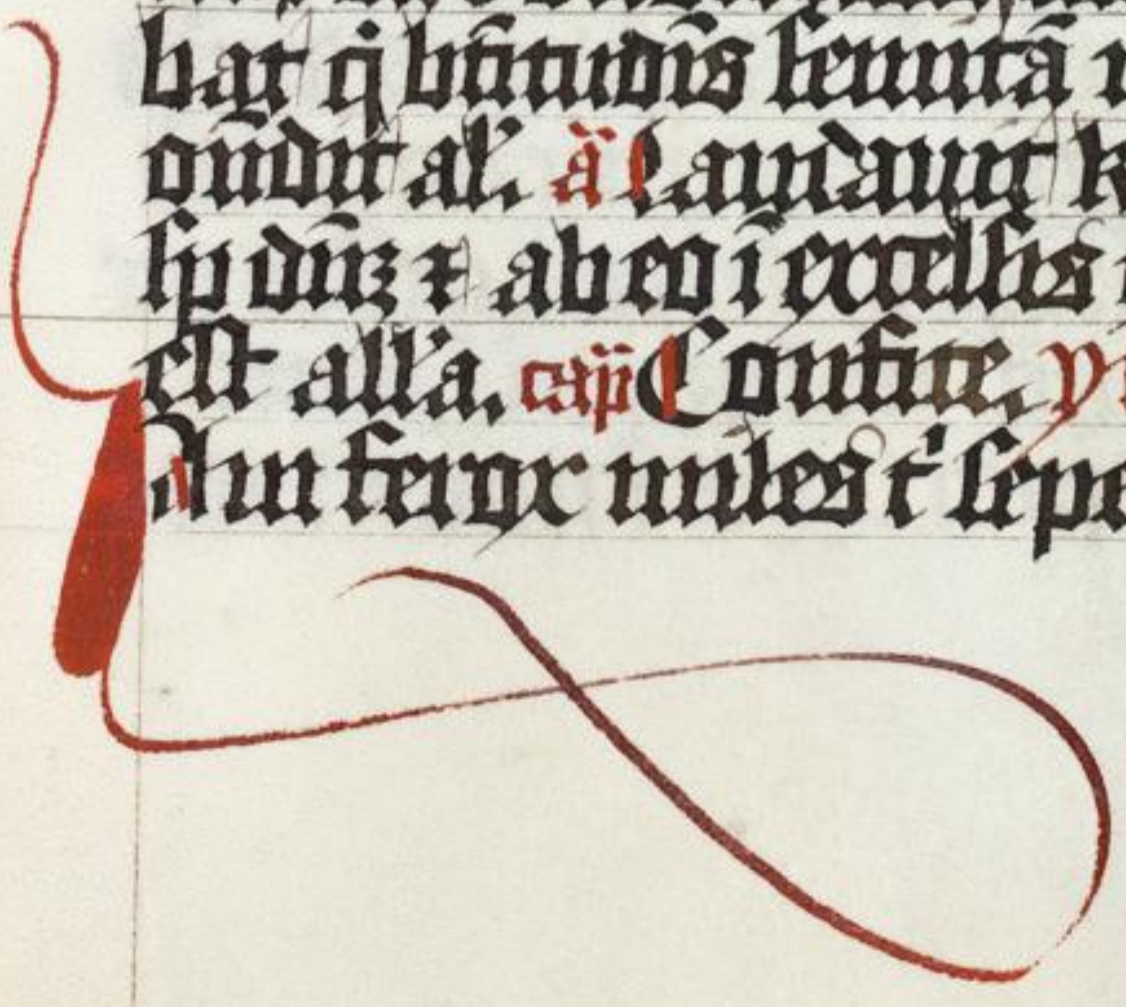 bat q̄ bt̄itudīs semitā
on̄dit al'. ā Laudauit
sp̄ dn̄z ⁊ ab eo ī excelsis
est all'a. cap̄ Confite.
Iam ferox miles t' sepe